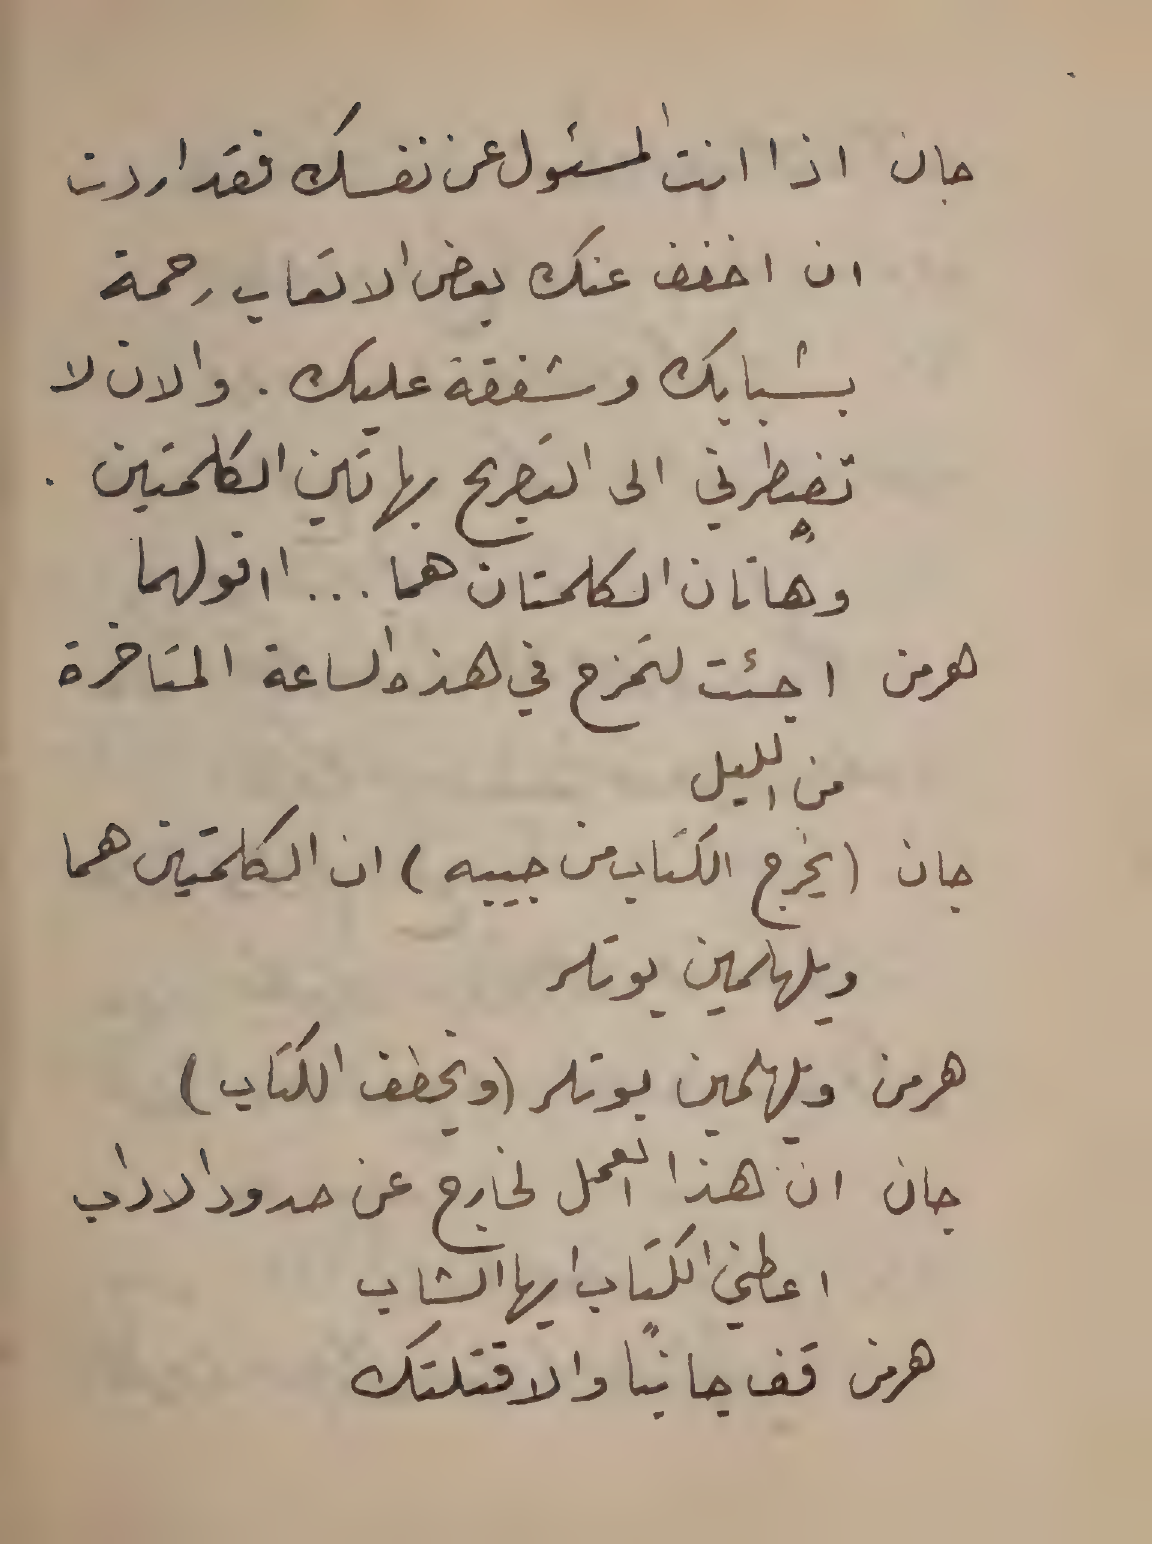 جان اذا انت المسئول عن نفسك فقد اردت
ان اخفف عنك بعض الاتعاب رحمة
بشبابك وشفقة عليك . والان لا
تضطرني الى التصريح بهاتين الكلمتين .
وهاتان الكلمتان هما ... اقولهما
هرمن اجئت لتمزح في هذه الساعة المتاخرة
من الليل
جان (يخرج الكتاب من جيبه) ان الكلمتين هما
ويلهلمين يوتلر
هرمن ويلهلمين يوتلر (ويخطف الكتاب)
جان ان هذا العمل لخارج عن حدود الاداب
اعطني الكتاب ايها الشاب
هرمن قف جانبًا والا قتلتك